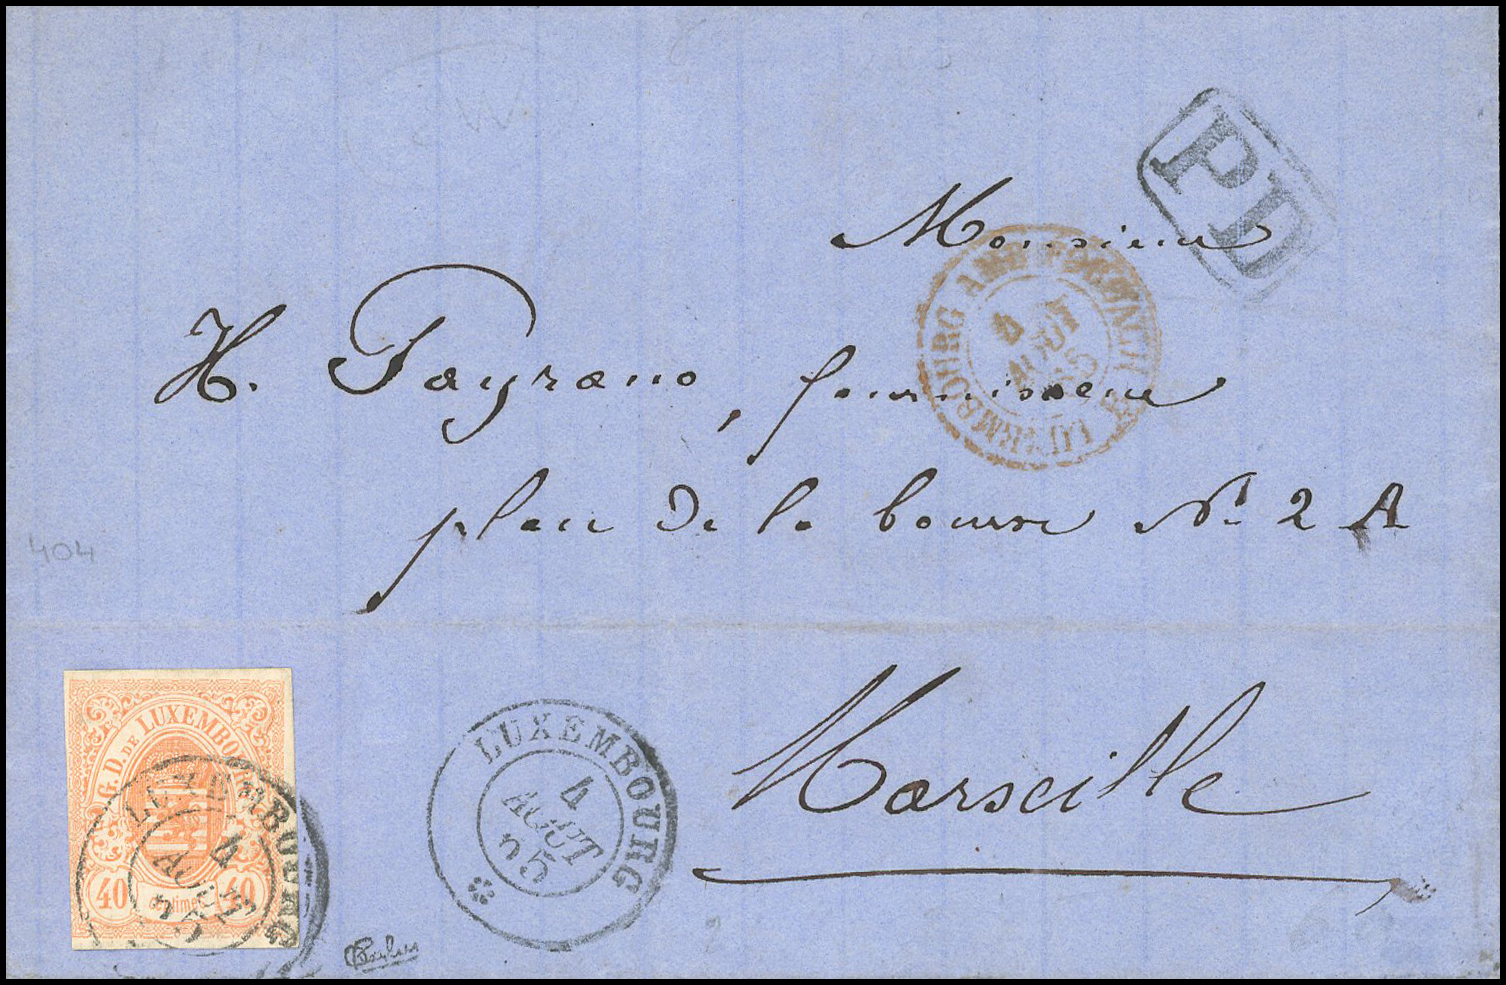 PD
Monsieur
LUXEMBOURG
4
AOUT
65
H. Payrano, fournisseur
place de la bourse N° 2 A
404
Marseille
G. D. DE LUXEMBOURG
40 Centimes 40
LUXEMBOURG
4
AOUT
LUXEMBOURG
4
AOUT
65